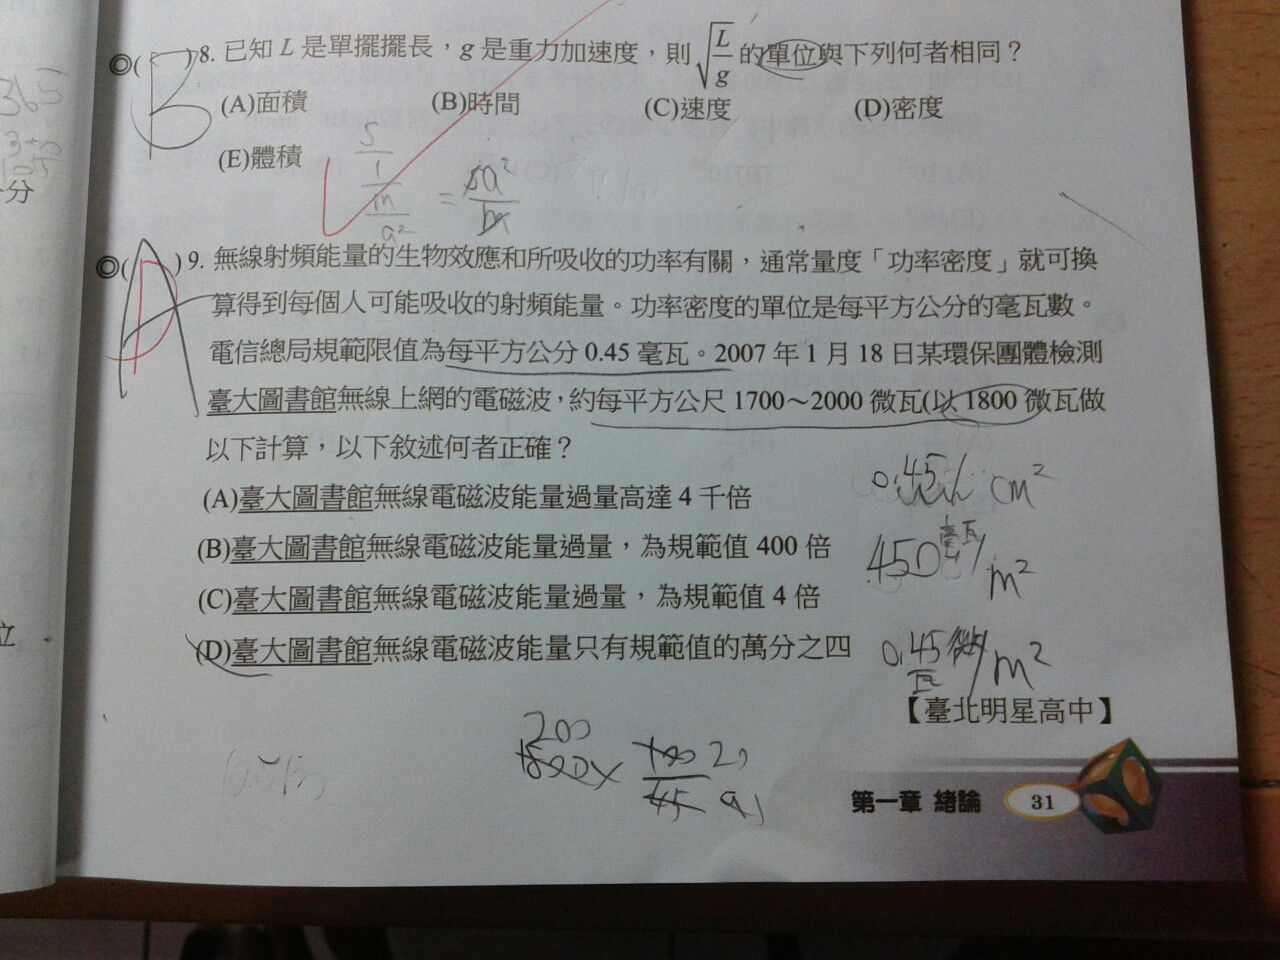 ◎( B )8. 已知 L 是單擺擺長，g 是重力加速度，則 √(L/g) 的單位與下列何者相同？
(A)面積 (B)時間 (C)速度 (D)密度
(E)體積
◎( A D )9. 無線射頻能量的生物效應和所吸收的功率有關，通常量度「功率密度」就可換
算得到每個人可能吸收的射頻能量。功率密度的單位是每平方公分的毫瓦數。
電信總局規範限值為每平方公分 0.45 毫瓦。2007 年 1 月 18 日某環保團體檢測
臺大圖書館無線上網的電磁波，約每平方公尺 1700～2000 微瓦(以 1800 微瓦做
以下計算，以下敘述何者正確？
(A)臺大圖書館無線電磁波能量過量高達 4 千倍
(B)臺大圖書館無線電磁波能量過量，為規範值 400 倍
(C)臺大圖書館無線電磁波能量過量，為規範值 4 倍
(D)臺大圖書館無線電磁波能量只有規範值的萬分之四
0.45 cm²
450毫瓦/m²
0.45微瓦/m²
【臺北明星高中】
200
第一章 緒論 31
365
分
立